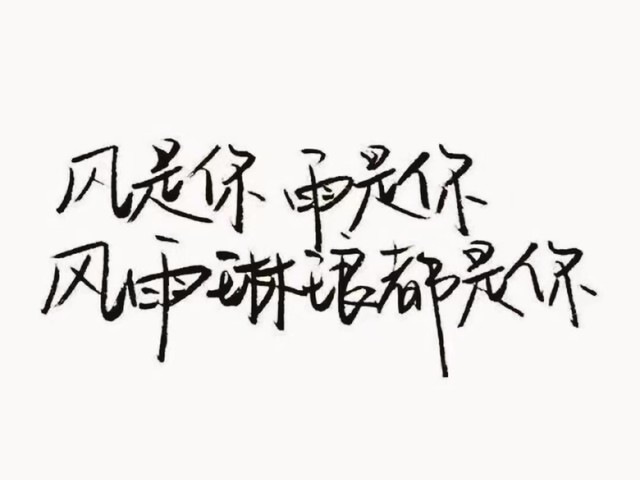 风是你 雨是你
风雨琳琅都是你